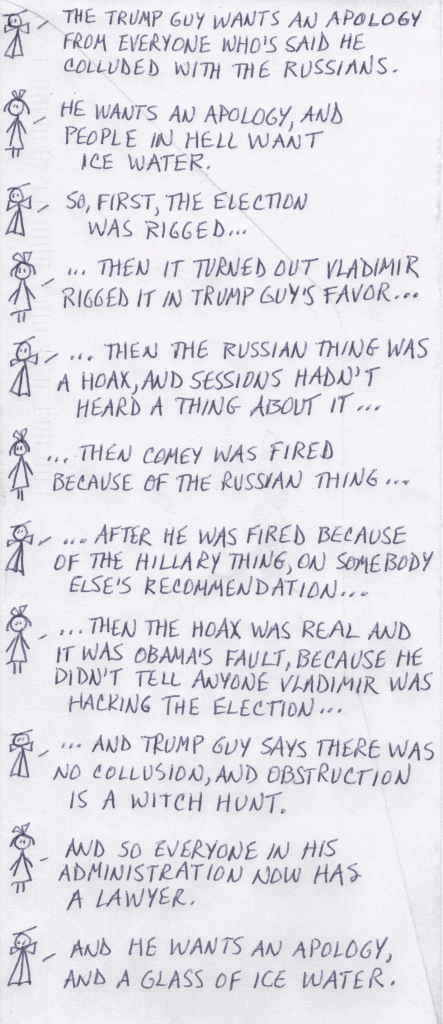 THE TRUMP GUY WANTS AN APOLOGY
FROM EVERYONE WHO'S SAID HE
COLLUDED WITH THE RUSSIANS.
HE WANTS AN APOLOGY, AND
PEOPLE IN HELL WANT
ICE WATER.
SO, FIRST, THE ELECTION
WAS RIGGED...
... THEN IT TURNED OUT VLADIMIR
RIGGED IT IN TRUMP GUY'S FAVOR...
... THEN THE RUSSIAN THING WAS
A HOAX, AND SESSIONS HADN'T
HEARD A THING ABOUT IT...
... THEN COMEY WAS FIRED
BECAUSE OF THE RUSSIAN THING...
... AFTER HE WAS FIRED BECAUSE
OF THE HILLARY THING, ON SOMEBODY
ELSE'S RECOMMENDATION...
... THEN THE HOAX WAS REAL AND
IT WAS OBAMA'S FAULT, BECAUSE HE
DIDN'T TELL ANYONE VLADIMIR WAS
HACKING THE ELECTION...
... AND TRUMP GUY SAYS THERE WAS
NO COLLUSION, AND OBSTRUCTION
IS A WITCH HUNT.
AND SO EVERYONE IN HIS
ADMINISTRATION NOW HAS
A LAWYER.
AND HE WANTS AN APOLOGY,
AND A GLASS OF ICE WATER.